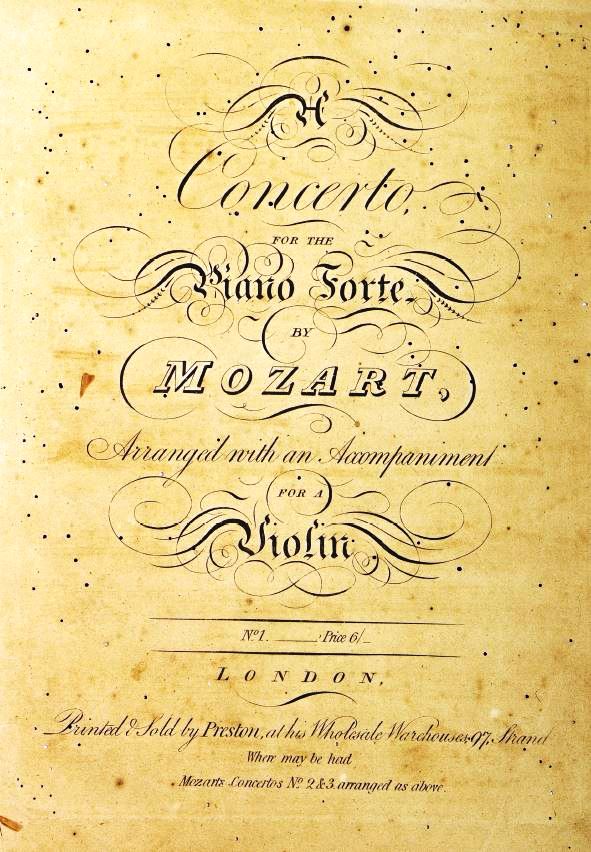 A
Concerto,
FOR THE
Piano Forte,
BY
MOZART,
Arranged with an Accompaniment
FOR A
Violin
No. 1. Price 6/_
LONDON,
Printed & Sold by Preston, at his Wholesale Warehouses, 97, Strand
Where may be had
Mozarts Concertos No. 2 & 3 arranged as above.